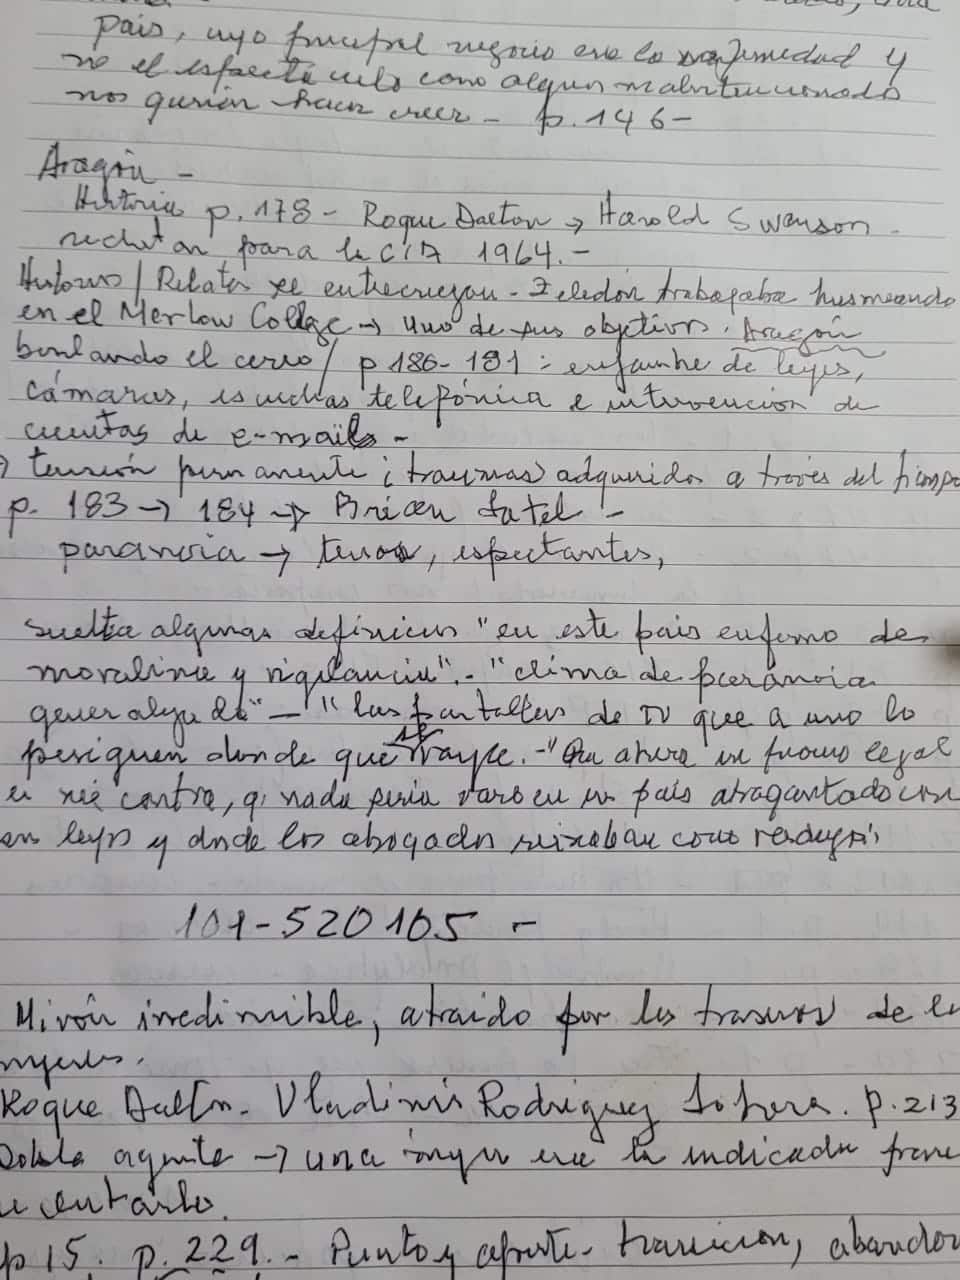 país, cuyo principal negocio era la enfermedad y
no el espectáculo como algun malintencionado
nos querían hacer creer - p. 146 -
Aragón -
Historia p. 178 - Roque Dalton → Harold Swanson -
reclutan para la CIA 1964. -
Historias / Relatos se entrecruzan - Zeledón trabajaba husmeando
en el Merlow College → uno de sus objetivos. Aragón
burlando el cerco / p 180 - 181 : enjambre de leyes,
cámaras, escuchas telefónica e intervencion de
cuentas de e-mails -
tensión permanente ¡ traumas adquiridos a través del tiempo
p. 183 → 184 → Brian Latel -
paranoia → tensos, espectantes,
suelta algunas definicion "en este país enfermo de
moralina y vigilancia". - "clima de paranoia
generalizada" - "las pantallas de TV que a uno lo
persiguen donde que vaya. - "
en mi contra, q' nada sería raro en un país atragantado con
leyes y donde los abogados como
101-520105 -
Mirón irredimible, atraído por los traseros de la
mujeres.
Roque Dalton - Vladimir Rodriguez p. 213
Doble agente → una mujer era la indicada
p 15. p. 229. - Punto y aparte - traicion, abandon